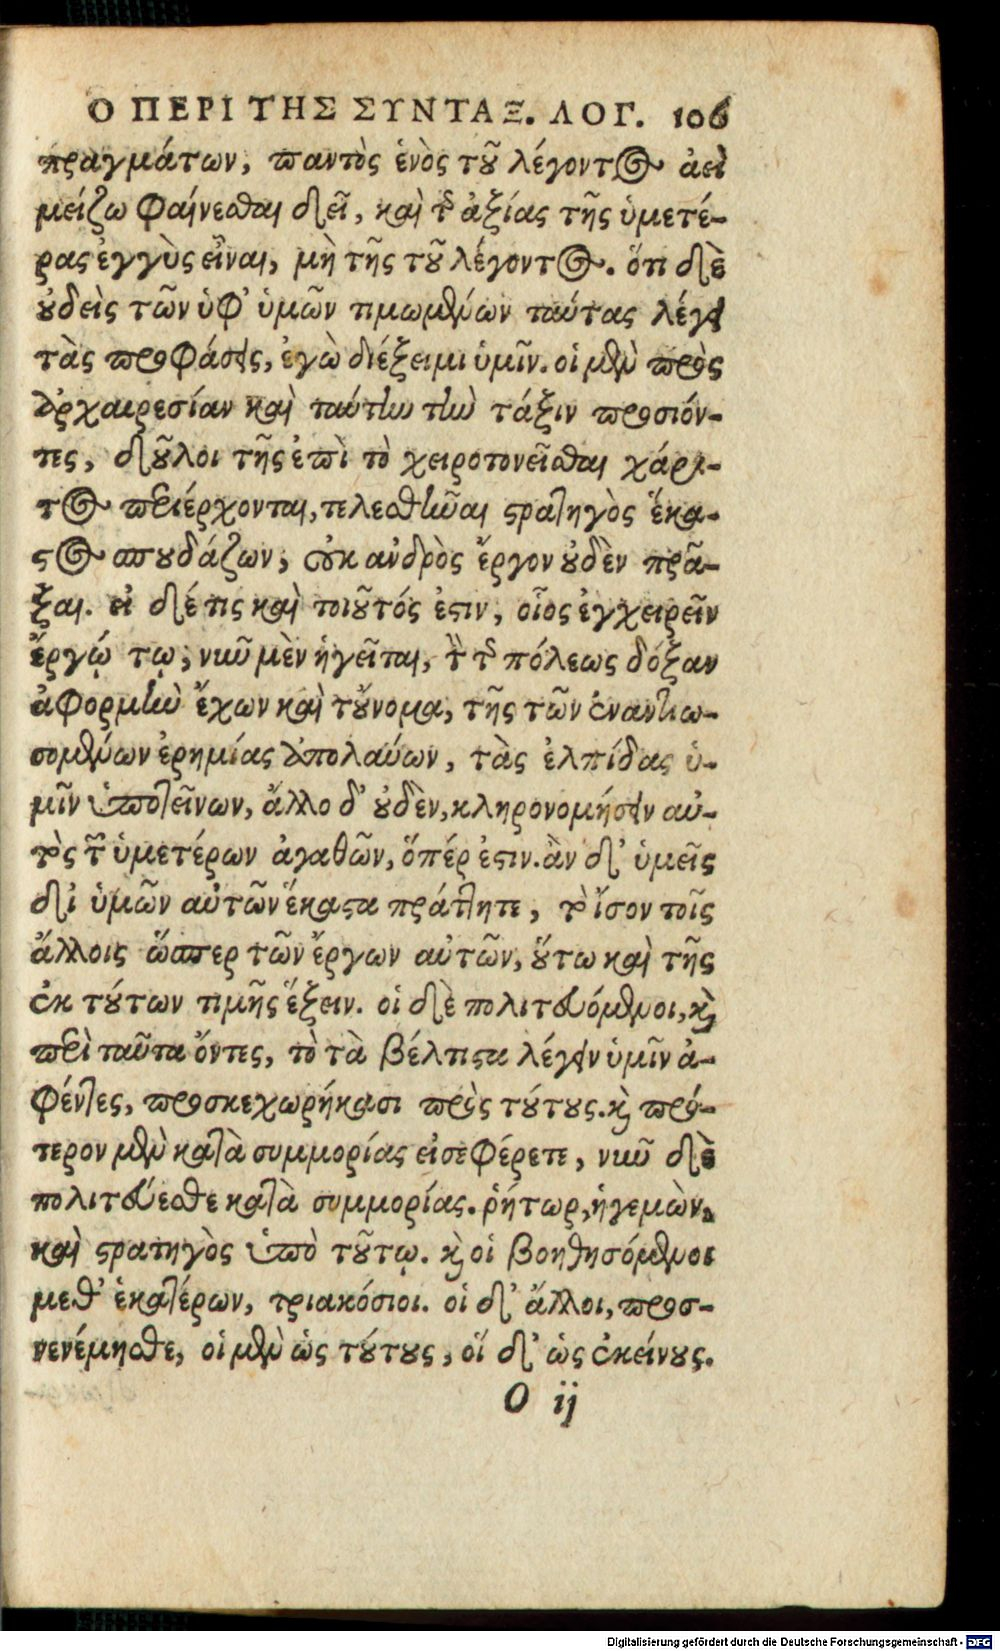 Ο ΠΕΡΙ ΤΗΣ ΣΥΝΤΑΞ. ΛΟΓ. 106
πραγμάτων, παντὸς ἑνὸς τοῦ λέγοντος ἀεὶ
μείζω φαίνεσθαι δεῖ, καὶ τῆς ἀξίας τῆς ὑμετέ-
ρας ἐγγὺς εἶναι, μὴ τῆς τοῦ λέγοντος. ὅτι δὲ
οὐδεὶς τῶν ὑφ' ὑμῶν τιμωμένων ταύτας λέγει
τὰς προφάσεις, ἐγὼ διέξειμι ὑμῖν. οἱ μὲν πρὸς
ἀρχαιρεσίαν καὶ ταύτην τὴν τάξιν προσιόν-
τες, δοῦλοι τῆς ἐπὶ τὸ χειροτονεῖσθαι χάρι-
τος περιέρχονται, τελεσθῆναι στρατηγὸς ἕκα-
στος σπουδάζων, οὐκ ἀνδρὸς ἔργον οὐδὲν πρᾶ-
ξαι. εἰ δέ τις καὶ τοιοῦτός ἐστιν, οἷος ἐγχειρεῖν
ἔργῳ τῳ, νῦν μὲν ἡγεῖται, τὴν τῆς πόλεως δόξαν
ἀφορμὴν ἔχων καὶ τοὔνομα, τῆς τῶν ἐναντιω-
σομένων ἐρημίας ἀπολαύων, τὰς ἐλπίδας ὑ-
μῖν ὑποτείνων, ἄλλο δ' οὐδὲν, κληρονομήσειν αὐ-
τὸς τῶν ὑμετέρων ἀγαθῶν, ὅπέρ ἐστιν. ἂν δ' ὑμεῖς
δι' ὑμῶν αὐτῶν ἕκαστα πράττητε, τὸ ἴσον τοῖς
ἄλλοις ὥσπερ τῶν ἔργων αὐτῶν, οὕτω καὶ τῆς
ἐκ τούτων τιμῆς ἕξειν. οἱ δὲ πολιτευόμενοι, καὶ
περὶ ταῦτα ὄντες, τὸ τὰ βέλτιστα λέγειν ὑμῖν ἀ-
φέντες, προσκεχωρήκασι πρὸς τούτους. καὶ πρό-
τερον μὲν κατὰ συμμορίας εἰσεφέρετε, νῦν δὲ
πολιτεύεσθε κατὰ συμμορίας. ῥήτωρ, ἡγεμὼν,
καὶ στρατηγὸς ὑπὸ τούτῳ. καὶ οἱ βοηθησόμενοι
μεθ' ἑκατέρων, τριακόσιοι. οἱ δ' ἄλλοι, προσ-
νενέμησθε, οἱ μὲν ὡς τούτους, οἵ δ' ὡς ἐκείνους.
O ij
Digitalisierung gefördert durch die Deutsche Forschungsgemeinschaft - DFG